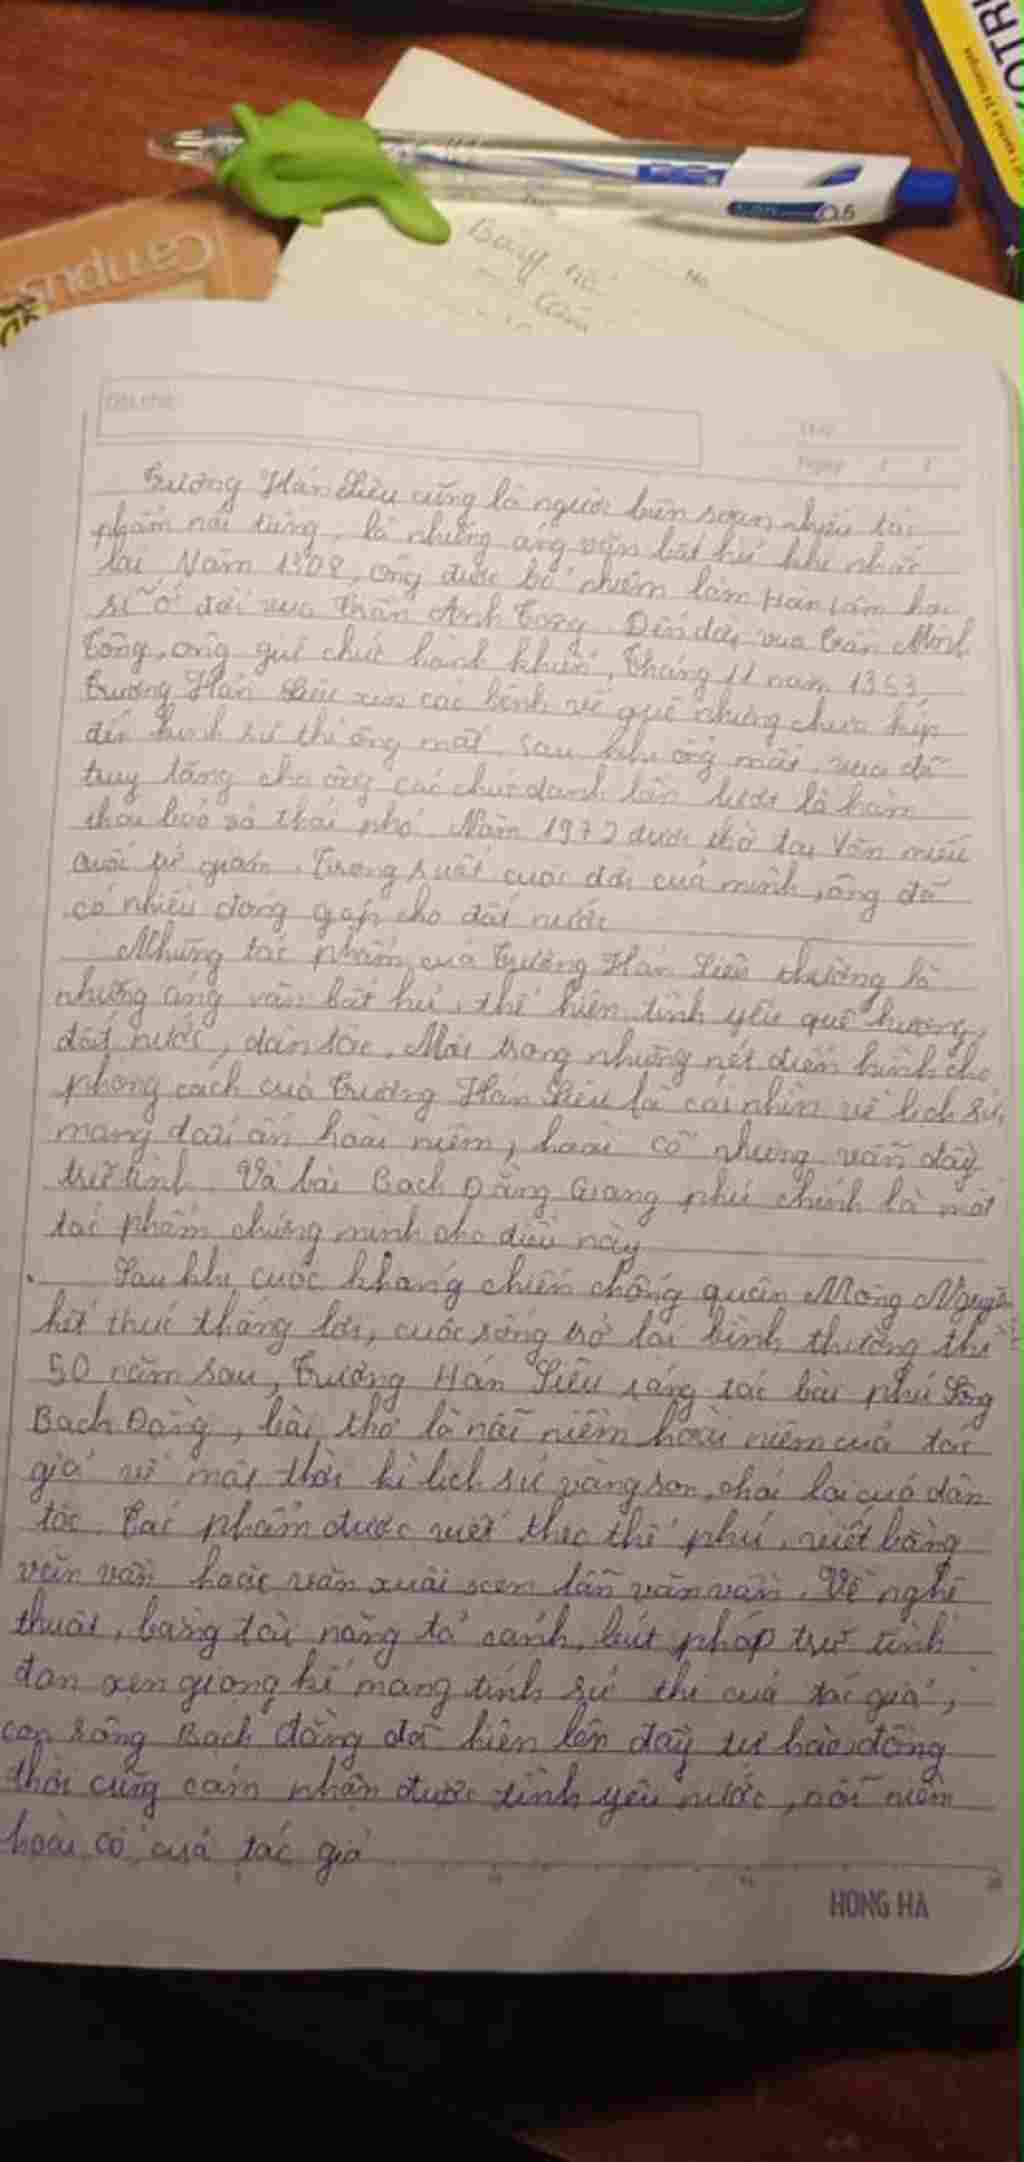 KOTRI
Campus
0.5
No.
Trương Hán Siêu cũng là người biên soạn nhiều tác
phẩm nổi tiếng, là những áng văn bất hủ khi nhắc
lại Năm 1308, ông được bổ nhiệm làm Hàn lâm học
sĩ ở đời vua Trần Anh Tông. Đến đời vua Trần Minh
Tông, ông giữ chức hành khiển, Tháng 11 năm 1353
Trương Hán Siêu xin cáo bệnh về quê nhưng chưa kịp
đến kinh sư thì ông mất. Sau khi ông mất, vua đã
truy tặng cho ông các chức danh lần lượt là hàm
thái bảo và thái phó. Năm 1972 được thờ tại Văn miếu
Quốc tử giám. Trong suốt cuộc đời của mình, ông đã
có nhiều đóng góp cho đất nước
Những tác phẩm của Trương Hán Siêu thường là
những áng văn bất hủ, thể hiện tình yêu quê hương,
đất nước, dân tộc. Một trong những nét điển hình cho
phong cách của Trương Hán Siêu là cái nhìn về lịch sử,
mang dấu ấn hoài niệm, hoài cổ nhưng vẫn đầy
trữ tình. Và bài Bạch Đằng Giang phú chính là một
tác phẩm chứng minh cho điều này
Sau khi cuộc kháng chiến chống quân Mông Nguyên
kết thúc thắng lợi, cuộc sống trở lại bình thường thì
50 năm sau, Trương Hán Siêu sáng tác bài phú Sông
Bạch Đằng, bài thơ là nỗi niềm hoài niệm của tác
giả về một thời kì lịch sử vàng son, chói lọi của dân
tộc. Tác phẩm được viết theo thể phú, viết bằng
văn vần hoặc văn xuôi xen lẫn văn vần. Về nghệ
thuật, bằng tài năng tả cảnh, bút pháp trữ tình
đan xen giọng kể mang tính sử thi của tác giả,
con sông Bạch Đằng đã hiện lên đầy tự hào, đồng
thời cũng cảm nhận được tình yêu nước, nỗi niềm
hoài cổ của tác giả
HONG HA